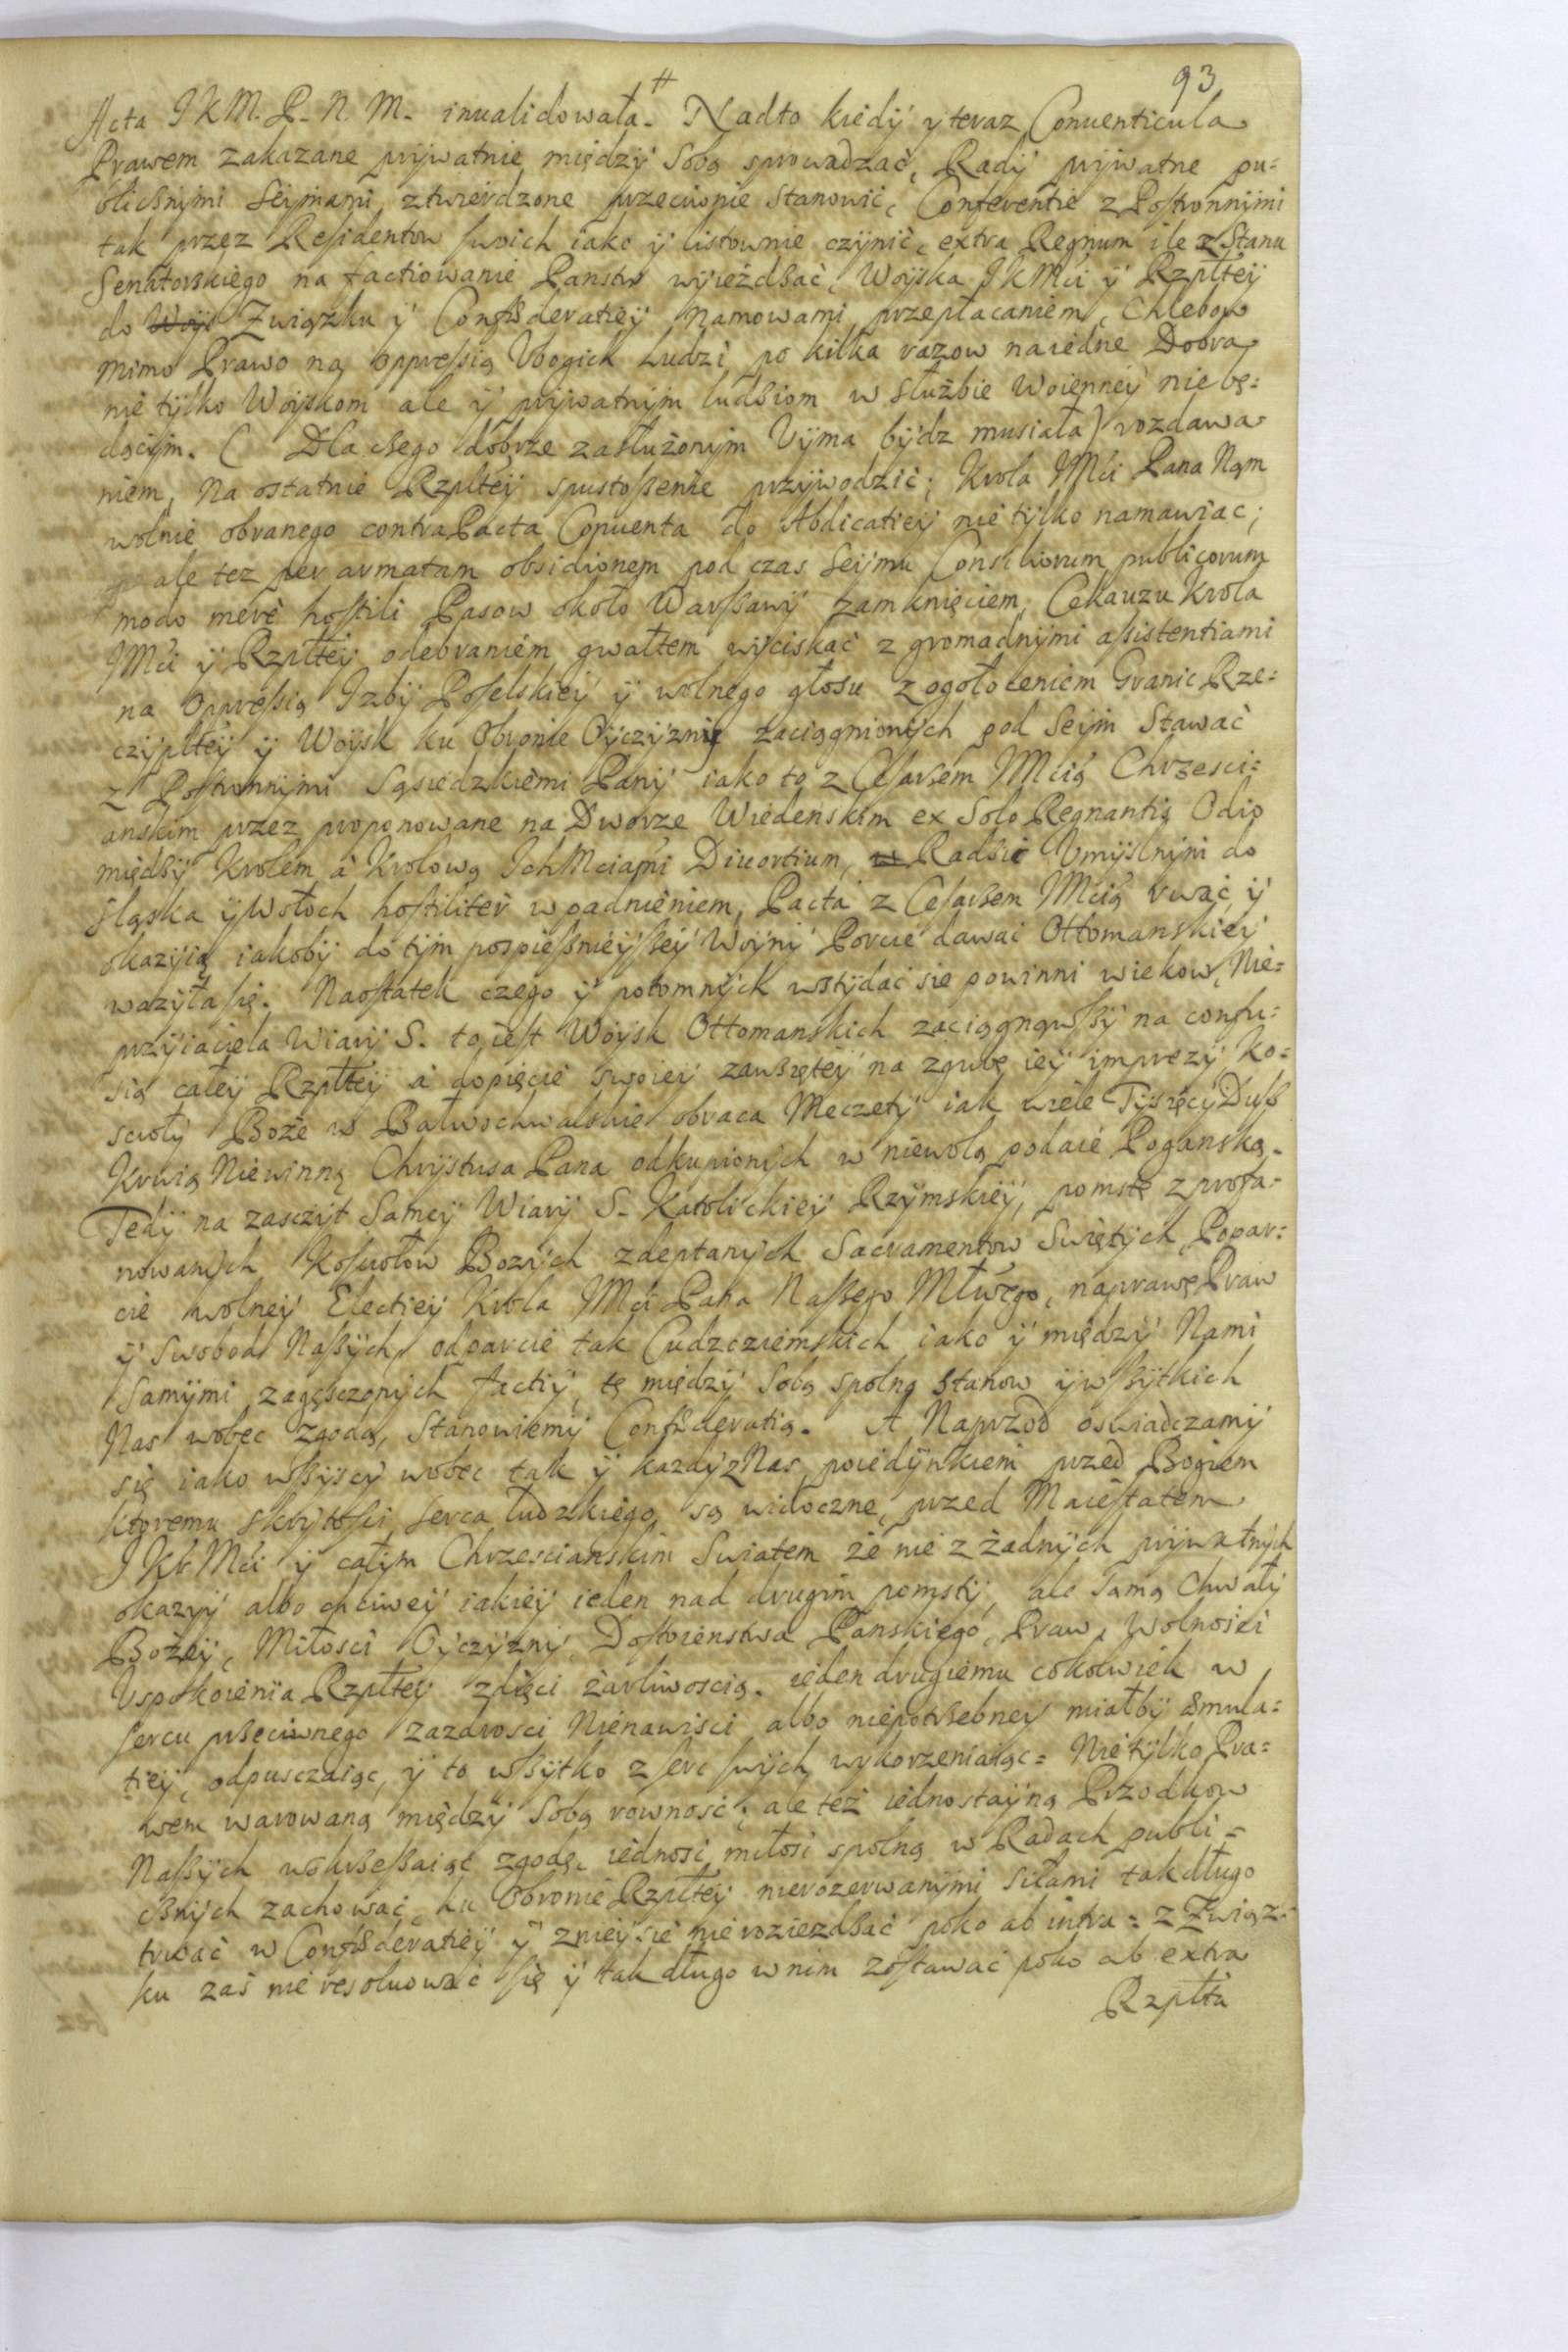 93
Acta J K M. P. N. M. inualidowała. # Nadto kiedÿ y teraz Conuenticula
Prawem zakazane prÿwatnie międzÿ sobą sprowadzać, Radÿ prÿwatne pu=
blicznÿmi Seÿmami ztwierdzone przeciwnie stanowić, Conferentie z Postronnÿmi
tak przez Residentow swoich iako ÿ listownie czÿnić, extra Regnum ile z Stanu
Senatorskiego na factiowanie Panstw wÿieżdsać, Woÿska JKMći ÿ Rzpłteÿ
do Woÿs Związku ÿ Confæderatieÿ namowami, przepłacaniem, Chlebow
mimo Prawo na oppressią Vbogich Ludzi po kilka razow na iedne Dobra
nie tÿlko Woÿskom ale ÿ prÿwatnÿm ludsiom w służbie Woienneÿ nie bę=
dącÿm. ( Dla csego dobrze zasłużonÿm Vÿma bÿdz musiała) rozdawa=
niem, na ostatnie Rzpłteÿ spustoszenie przÿwodzić; Krola JMći Pana Nam
wolnie obranego contra Pacta Conuenta do Abdicatieÿ nie tÿlko namawiac;
ale tez per armatam obsidionem pod czas Seÿmu Consiliorum publicorum
modo merè hostili Pasow około Warszawÿ zamknięciem, Cekauzu Krola
JMći ÿ Rzpłteÿ odebraniem gwałtem wÿciskać z gromadnÿmi assistentiami
na oppressią Izbÿ Poselskieÿ ÿ wolnego głosu z ogołoceniem Granic Rze=
czÿpłteÿ ÿ Woÿsk ku Obronie Oÿczÿznÿ zaciągnionÿch pod Seÿm stawać
z Postronnÿmi Sąsiedzkiemi Panÿ iako to z Cesarsem JMcią Chrzesci=
anskim przez proponowane na Dworze Wiedenskim ex solo Regnantis Odio
międsÿ Krolem à Krolową IchMciami Diuortium, w Radsie Vmÿslnÿm do
Sląska ÿ Wołoch hostiliter wpadnieniem, Pacta z Cesarsem JMcią rwać, ÿ
okazÿią iakobÿ do tÿm pospiesznieÿszeÿ Woÿnÿ Porcie dawać Ottomanskieÿ
wazÿła się. Naostatek czego ÿ potomnÿch wstÿdać sie powinni wiekow, Nie=
przÿiaciela Wiarÿ S. to iest Woÿsk Ottomanskich zaciągnąwszÿ na confu=
sią całeÿ Rzpłteÿ à dopięcie swoieÿ zawsięteÿ na zgubę ieÿ imprezÿ Ko=
sciołÿ Boże w Bałwochwalskie obraca Meczetÿ iak wiele Tÿsięcÿ Dusz
Krwią Niewinną Chrÿstusa Pana odkupionÿch w niewolą podaie Poganską.
Tedÿ na zasczÿt Sameÿ Wiarÿ S. Katolickieÿ Rzÿmskieÿ, pomstę z profa=
nowanÿch Kosciołow Bozÿch zdeptanÿch Sacramentow Swiętÿch, Popar=
cie wolneÿ Electieÿ Krola JMći Pana Naszego Młwego, naprawę Praw
ÿ Swobod Naszÿch, odparcie tak Cudzoziemskich iako ÿ międzÿ Nami
samÿmi zagęsczonÿch factiÿ, tę międzÿ sobą spolną Stanow ÿ wszÿtkich
Nas wobec zgodą, stanowiemÿ Confæderatią. A Naprzod oswiadczamÿ
się iako wszÿscÿ wobec tak ÿ kazdÿ z Nas poiedÿnkiem przed Bogiem
ktoremu skrÿtosci serca ludzkiego są widoczne, przed Maiestatem
J Kr Mći ÿ całÿm Chrzescianskim Swiatem że nie z żadnÿch prÿwatnÿch
okazÿÿ albo chciweÿ iakieÿ ieden nad drugim pomstÿ, ale samą Chwałÿ
Bożeÿ, Miłosci Oÿczÿznÿ, Dostoienstwa Panskiego, Praw, Wolnosci
Vspokoienia Rzpłteÿ zdięci żarliwoscią. ieden drugiemu cokolwiek w
sercu przeciwnego zazdrosci Nienawisci albo niepotrsebneÿ miałbÿ æmula=
tieÿ, odpusczaiąc, ÿ to wszÿtko z serc swÿch wykorzeniaiąc= Nie tÿlko Pra=
wem warowaną międzÿ sobą rownosć, ale też iednostaÿną Przodkow
Naszÿch wskrseszaiąc zgodę, iednosć, miłosć spolną w Radach publi=
csnÿch zachować, ku Obronie Rzpłteÿ nierozerwanÿmi siłami tak długo
trwać w Confæderatieÿ ÿ z nieÿ sie nie roziezdsać poko ab intra= z Związ=
ku zaś nie resoluować się ÿ tak długo w nim zostawać poko ab extra
Rzpłta